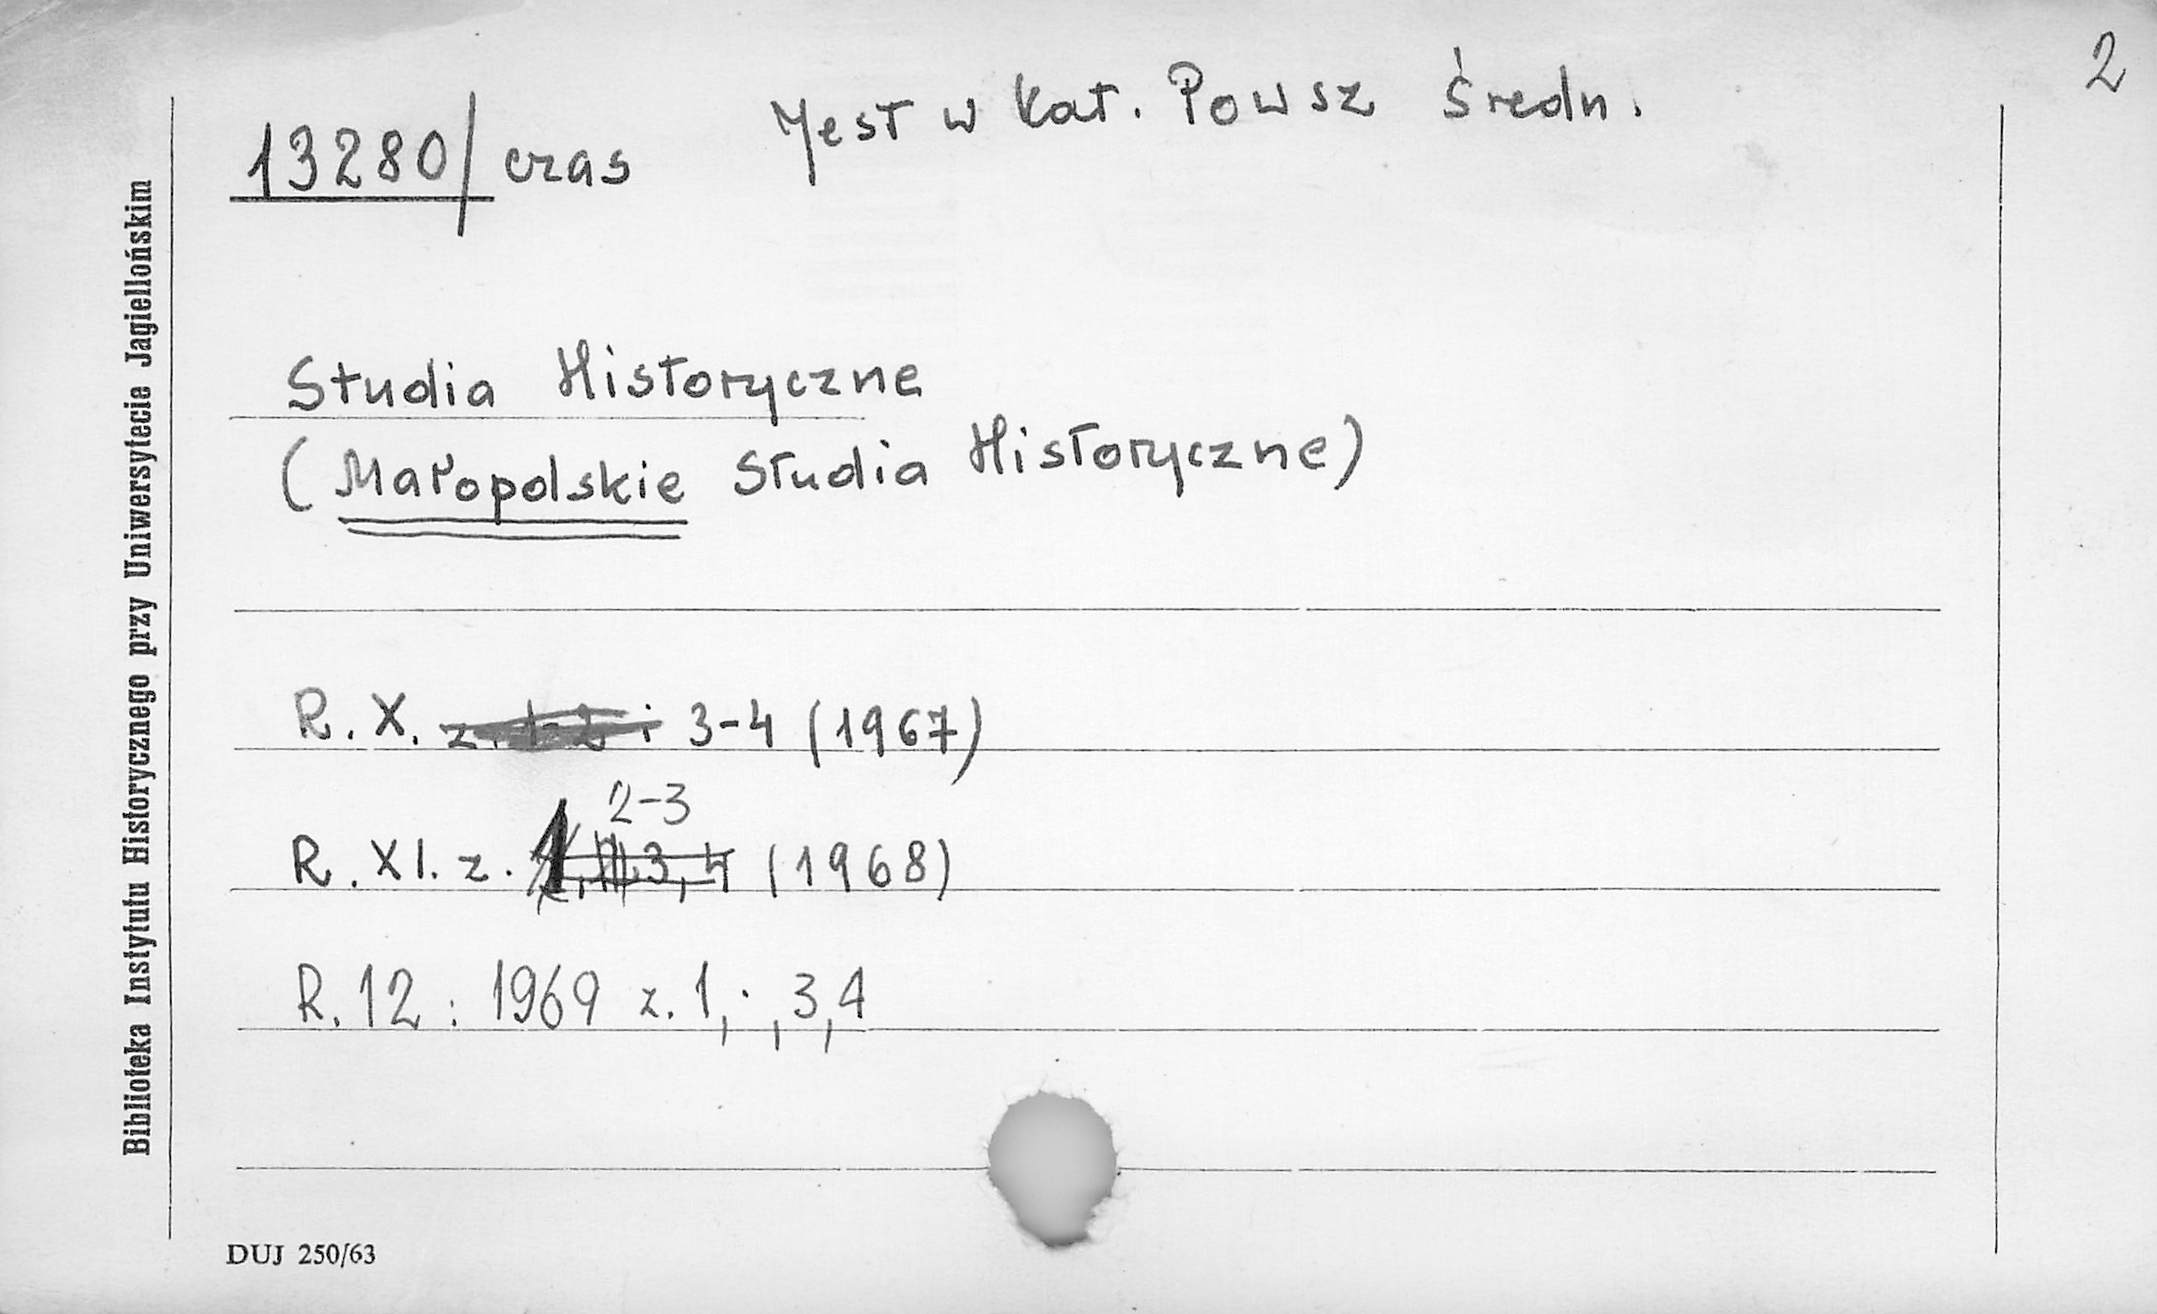 2
Jest w kat. Powsz Średn.
13280/czas
Biblioteka Instytutu Historycznego przy Uniwersytecie Jagiellońskim
Studia Historyczne
(Małopolskie Studia Historyczne)
R. X. z. 1-2 i 3-4 (1967)
2-3
R. XI. z. 1, 3, 4 (1968)
R. 12 : 1969 z. 1, , 3, 4
DUJ 250/63